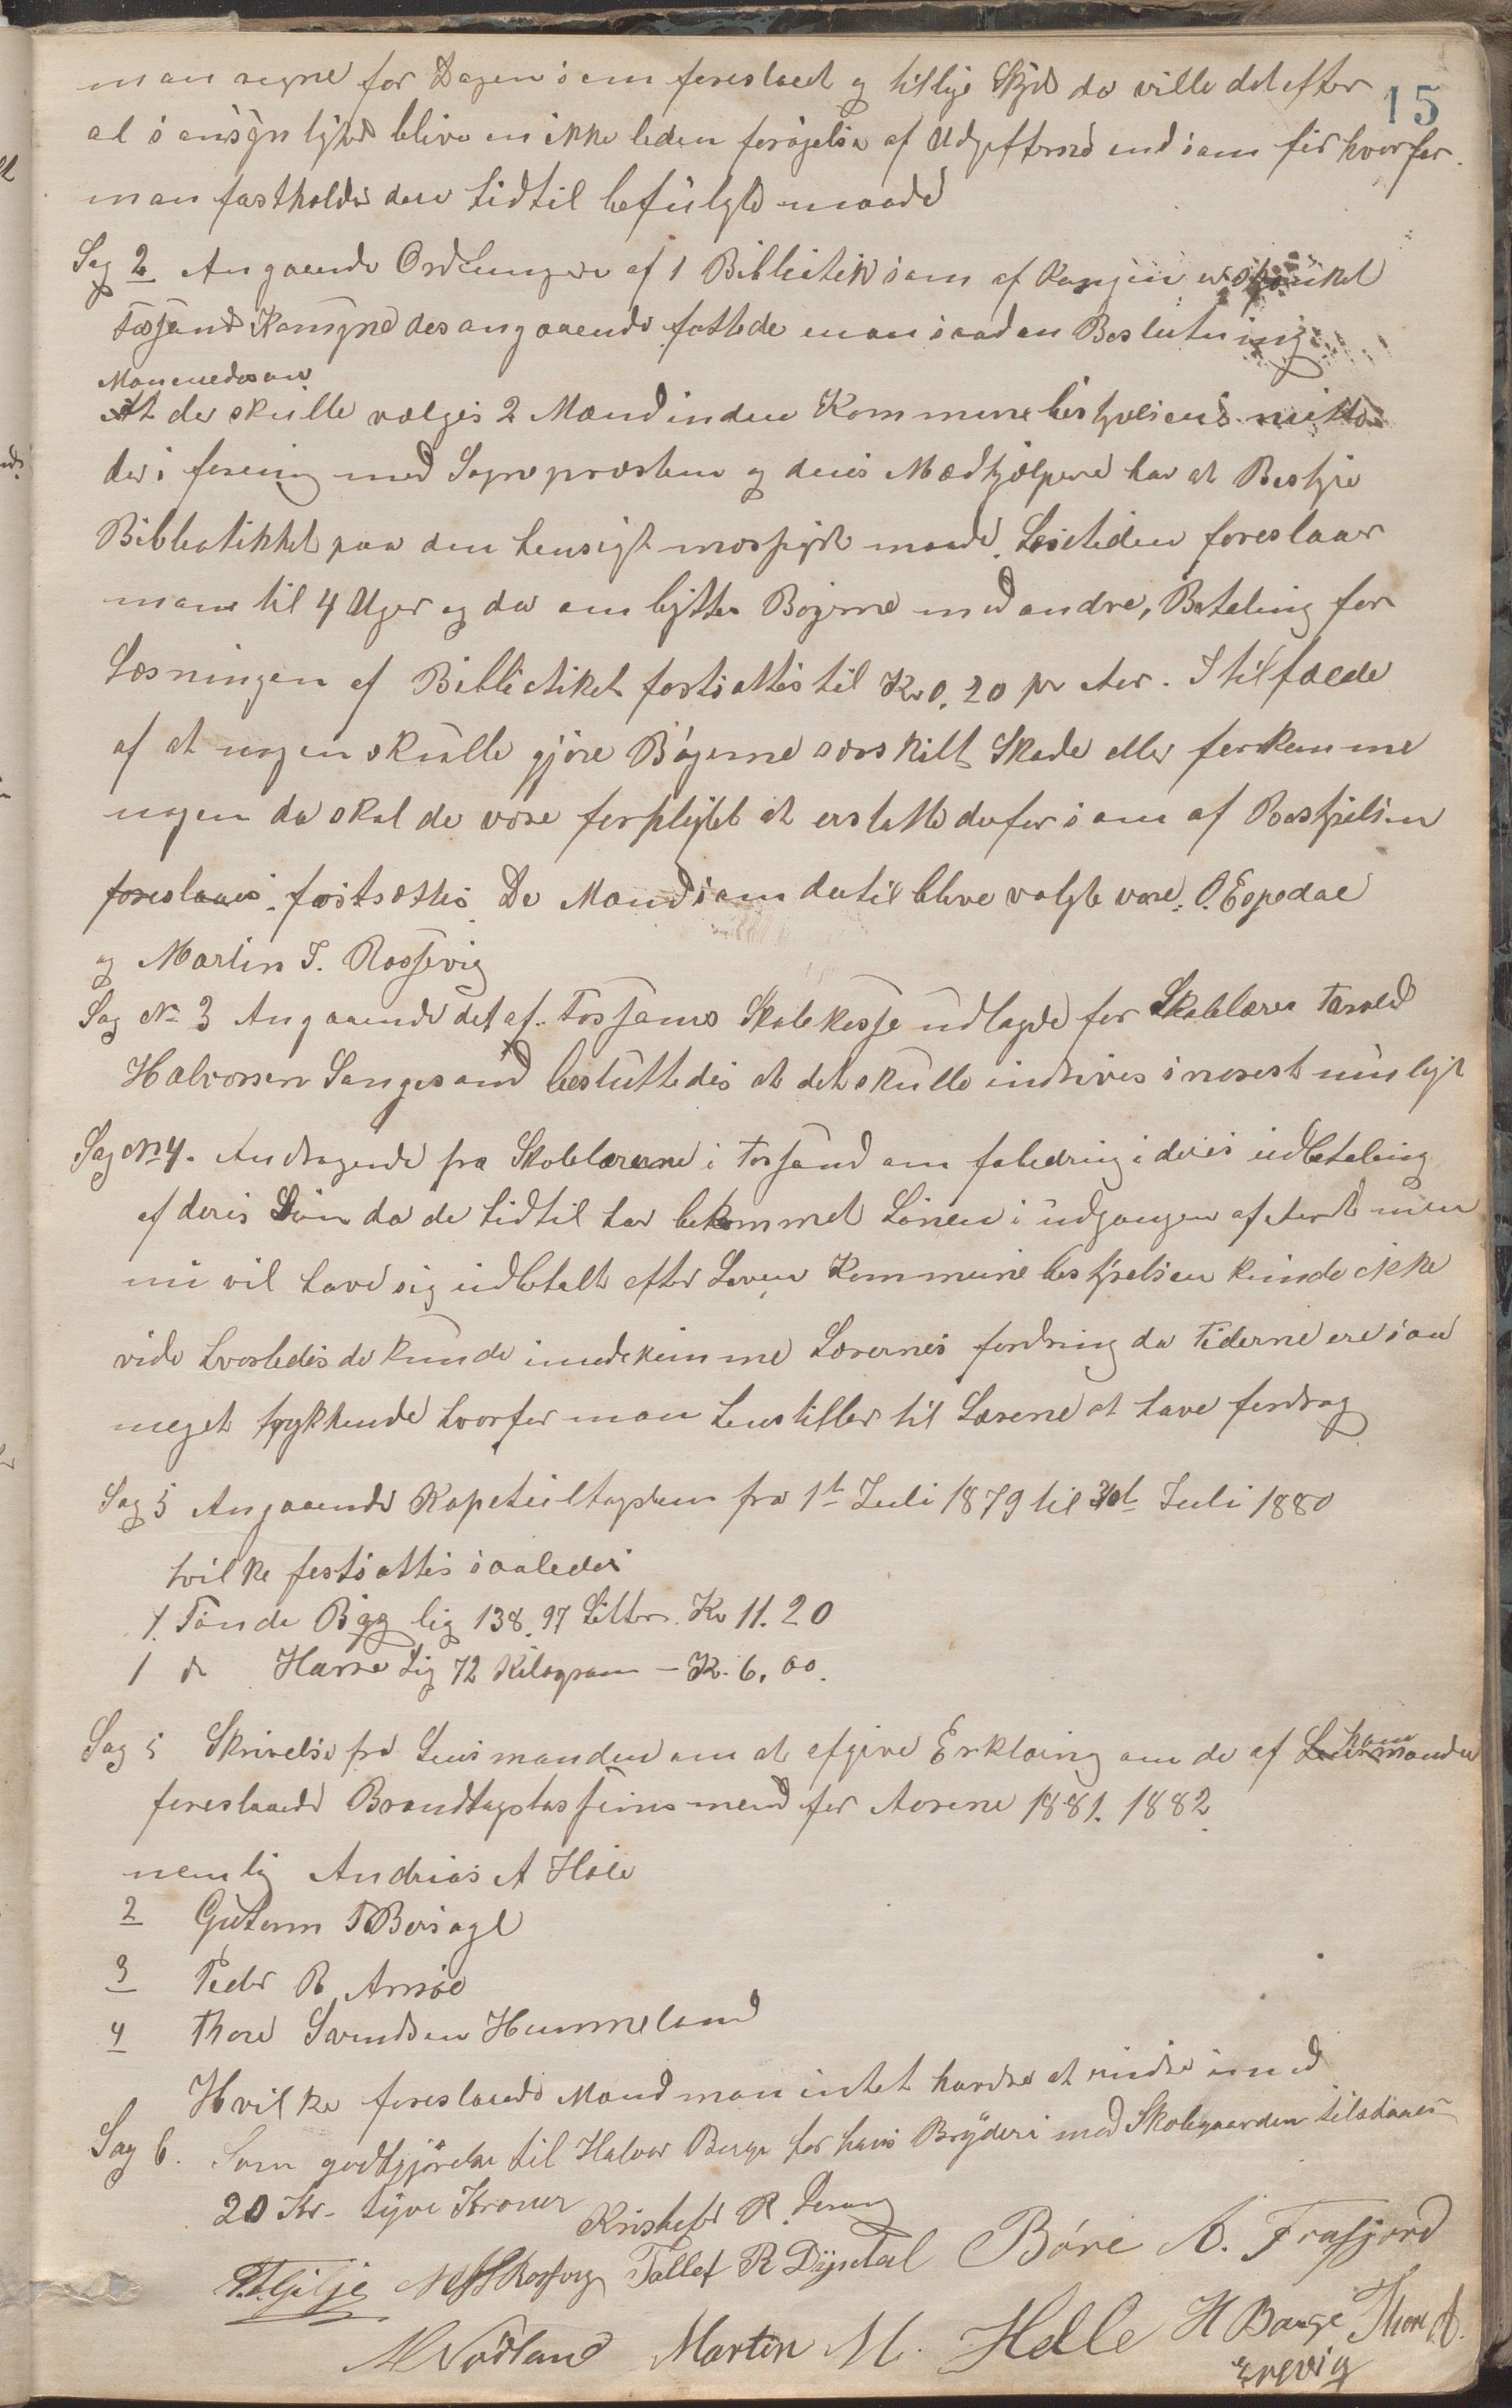 15
man regne for Dagen som foreslaaet og tillige Skyds da ville det efter
al sansynlighed blive en ikke liden forøgelse af Udgifterne end som før hvorfor
man fastholder den hidtil befulgte maade
Sag 2 Angaaende Ordningen af 1 Bibliotek som af Kongen er skjænket
Fossand Komgne desangaaende fattede man saadan Beslutning
Man enedes om
At der skulle vælges 2 Mænd inden Kommunebestyrelsens mitte
der i forening med Sognepræsten og deres Medhjælpere har at Bestyre
Bibliotikket paa den hensigtmæssigste maade. Læsetiden foreslaar
man til 4 Uger og da ombytte Bøgerne med andre, Betaling for
Læsningen af Bibliotiket fastsættes til Kr 0.20 pr Aar. I tilfælde
af at nogen skulle gjøre Bøgerne særskilt Skade eller forkomme
nogen da skal de være forpligtet at erstatte derfor som af Bestyrelsen
foreslaaes fastsættes De Mænd som dertil bleve valgte vare. O. Espedal
og Martin T. Rossevig
Sag No 3 Angaaende det af Fossans Skolekasse udlagde for Skolelærer Tarald
Halvorsen Sangesand besluttedes at det skulle inddrives snarest muligt
Sag No 4. Andragende fra Skolelærerne i Fossand om forbedring i deres udbetaling
af deres Løn da de hidtil har bekommet Lønen i udgangen af Aaret men
nu vil have sig udbetalt efter Loven Kommunebestyrelsen kunde ikke
vide hvorledes de kunde imødekomme Lærernes fordring da Tiderne ere saa
meget trykkende hvorfor man henstiller til Lærerne at have fordrag
Sag 5 Angaaende Kapeteltagsten fra 1te Juli 1879 til 30te Juli 1880
hvilke fastsattes saaledes
1. Tønde Bygg lig 138.97 Litter. Kr 11.20
1 do Havre Lig 72 Kilogram - Kr. 6.00.
Sag 5 Skrivelse fra Lensmanden om at afgive Erklæring om de af Lensmanden ham
foreslaaede Brandtagstasjonsmend for Aarene 1881. 1882.
nemlig Andrias A Hole
2 Gutorm T Bersagl
3 Peder R Amsøe
4 Thore Svendsen Hummeland
Hvilke foreslaaede Mænd man intet havde at indvende imod
Sag 6. Som godtgjørelse til Halvor Berge for hans Bryderi med Skolegaarden tilstaaes
20 Kr. tyve Kroner Kristofer R.
T. T. Gilje M T Rossevig Tollef R Dyrdal Børe A. Frafjord
M Nødland Martin M. Helle H Barge Thore A.
Erevig